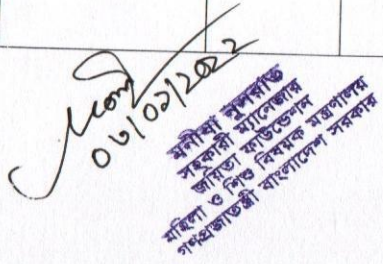 ০৬/০২/২০২২
মনীষা নুসরাত
সহকারী ম্যানেজার
জয়িতা ফাউন্ডেশন
মহিলা ও শিশু বিষয়ক মন্ত্রণালয়
গণপ্রজাতন্ত্রী বাংলাদেশ সরকার